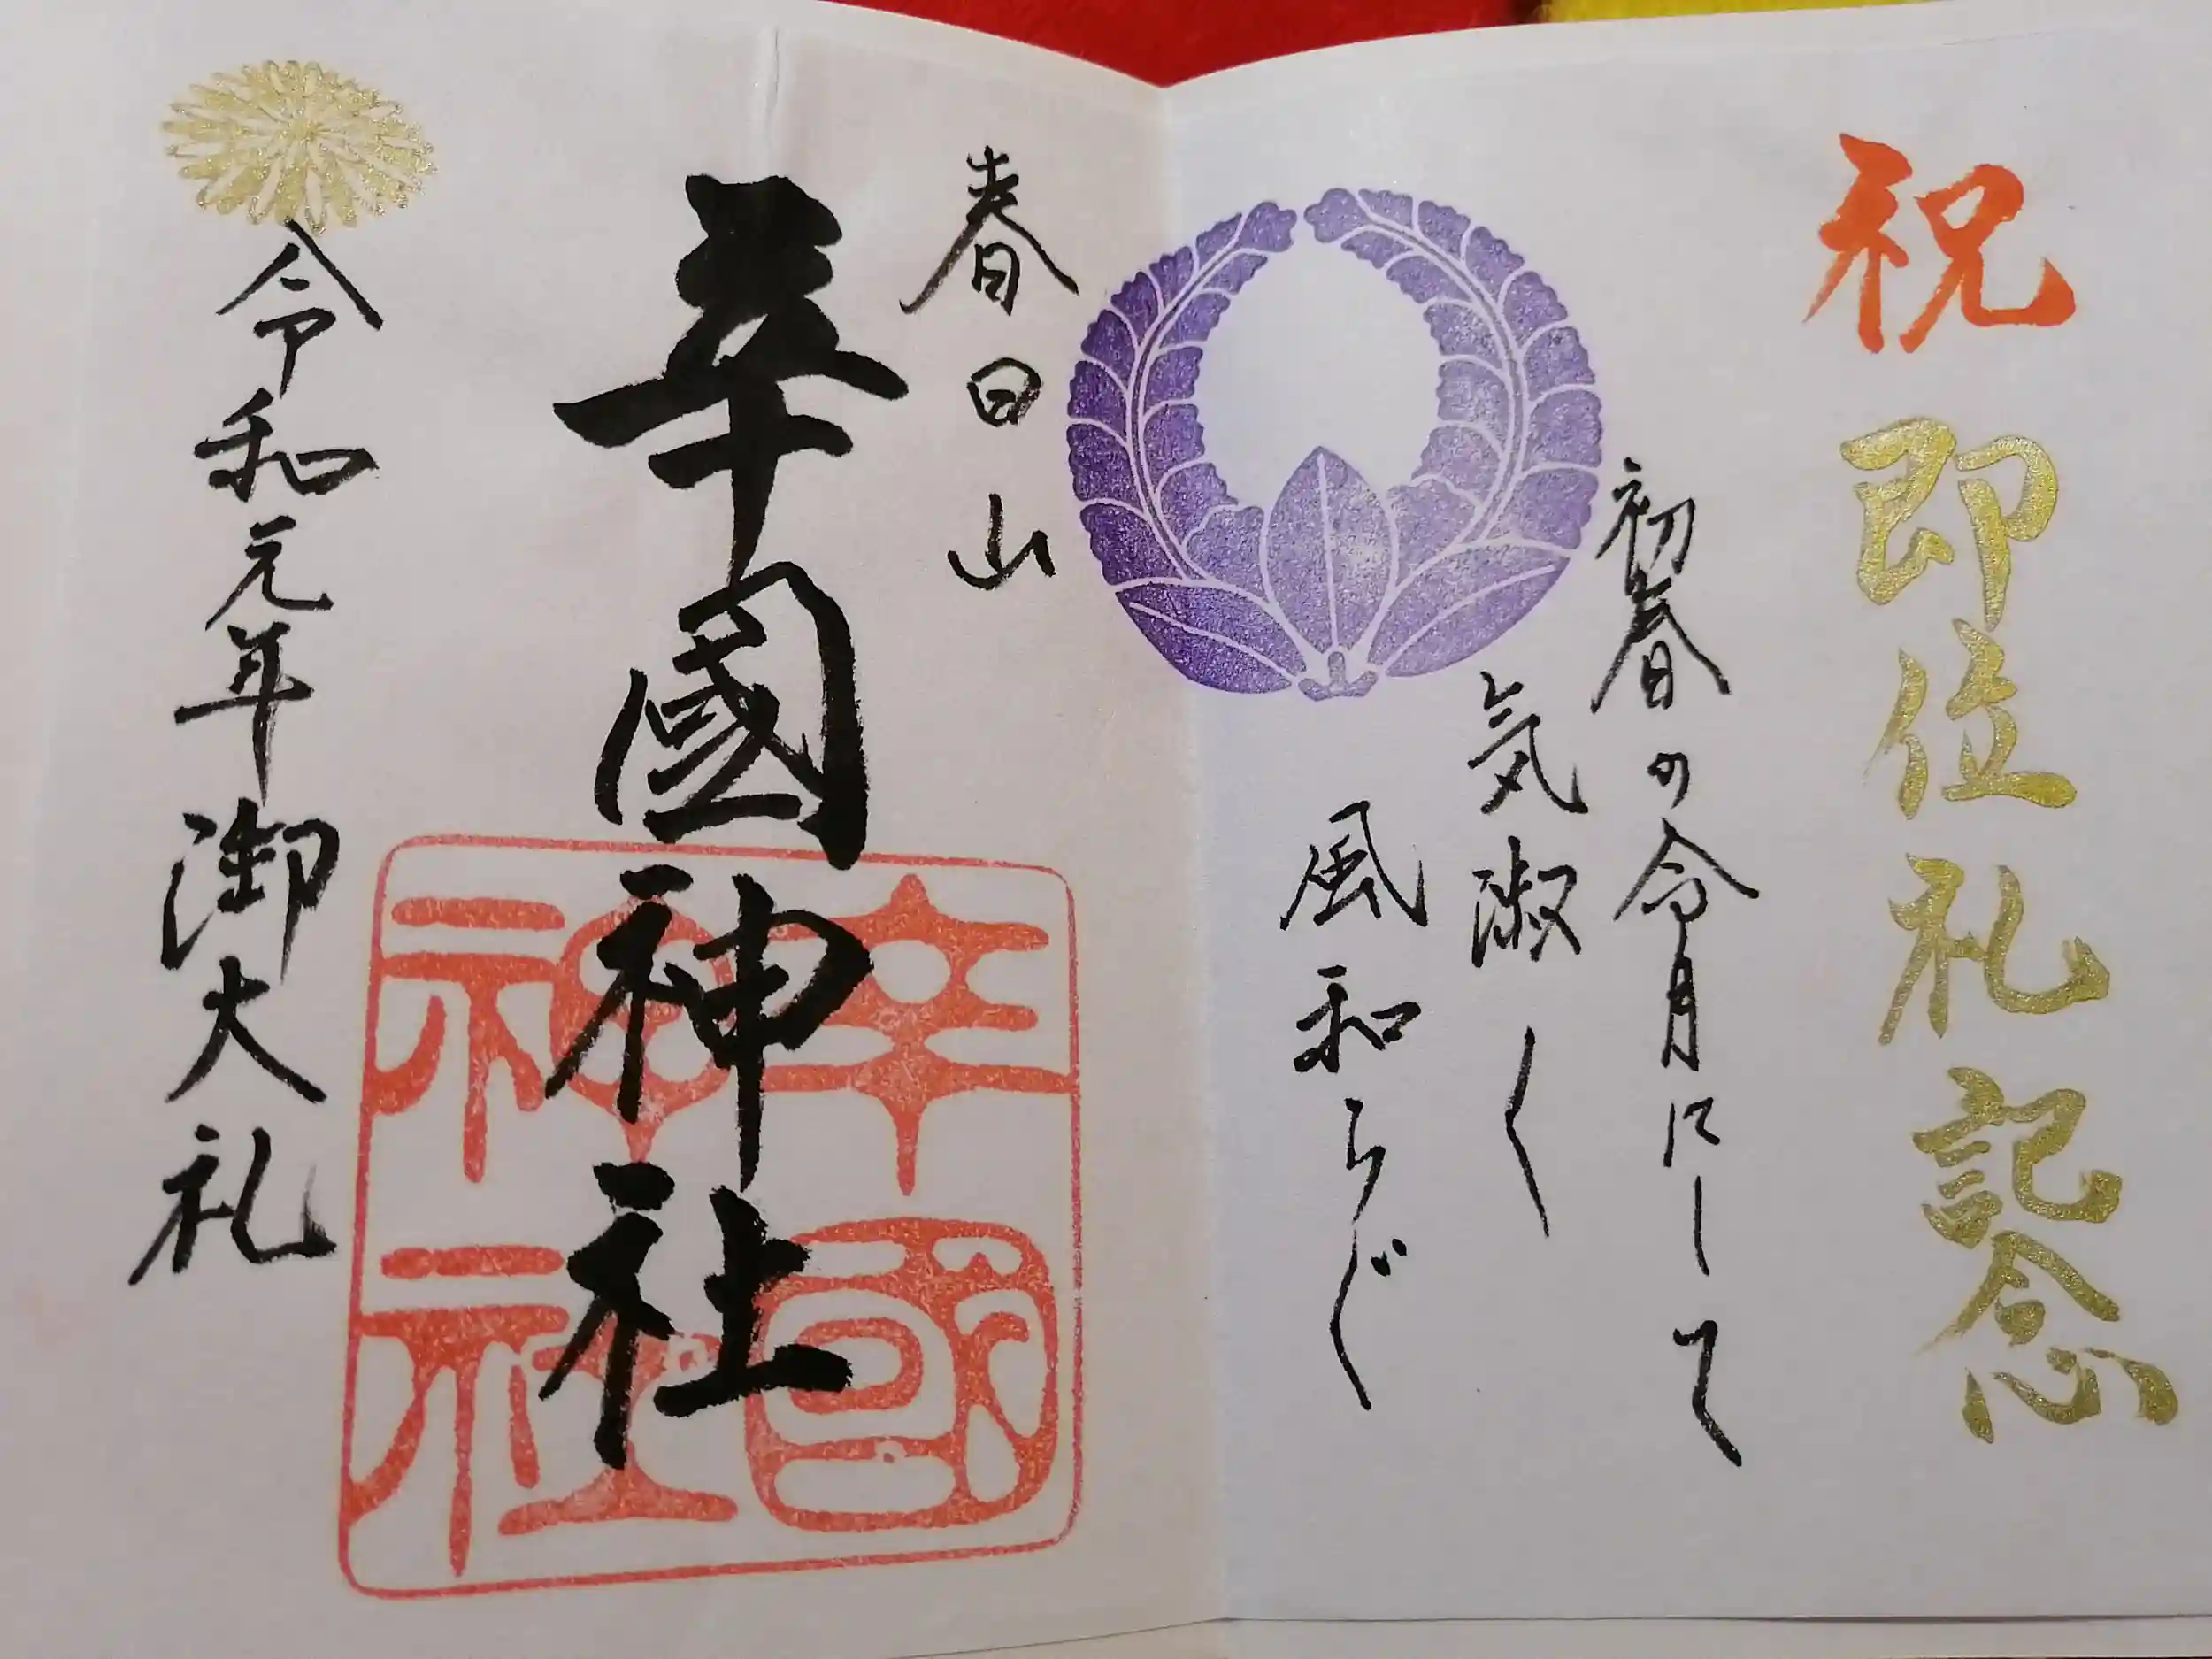 祝 即位礼記念
初春の令月にして
気淑く
風和らぐ
春日山
幸國神社
幸國神社
令和元年御大礼